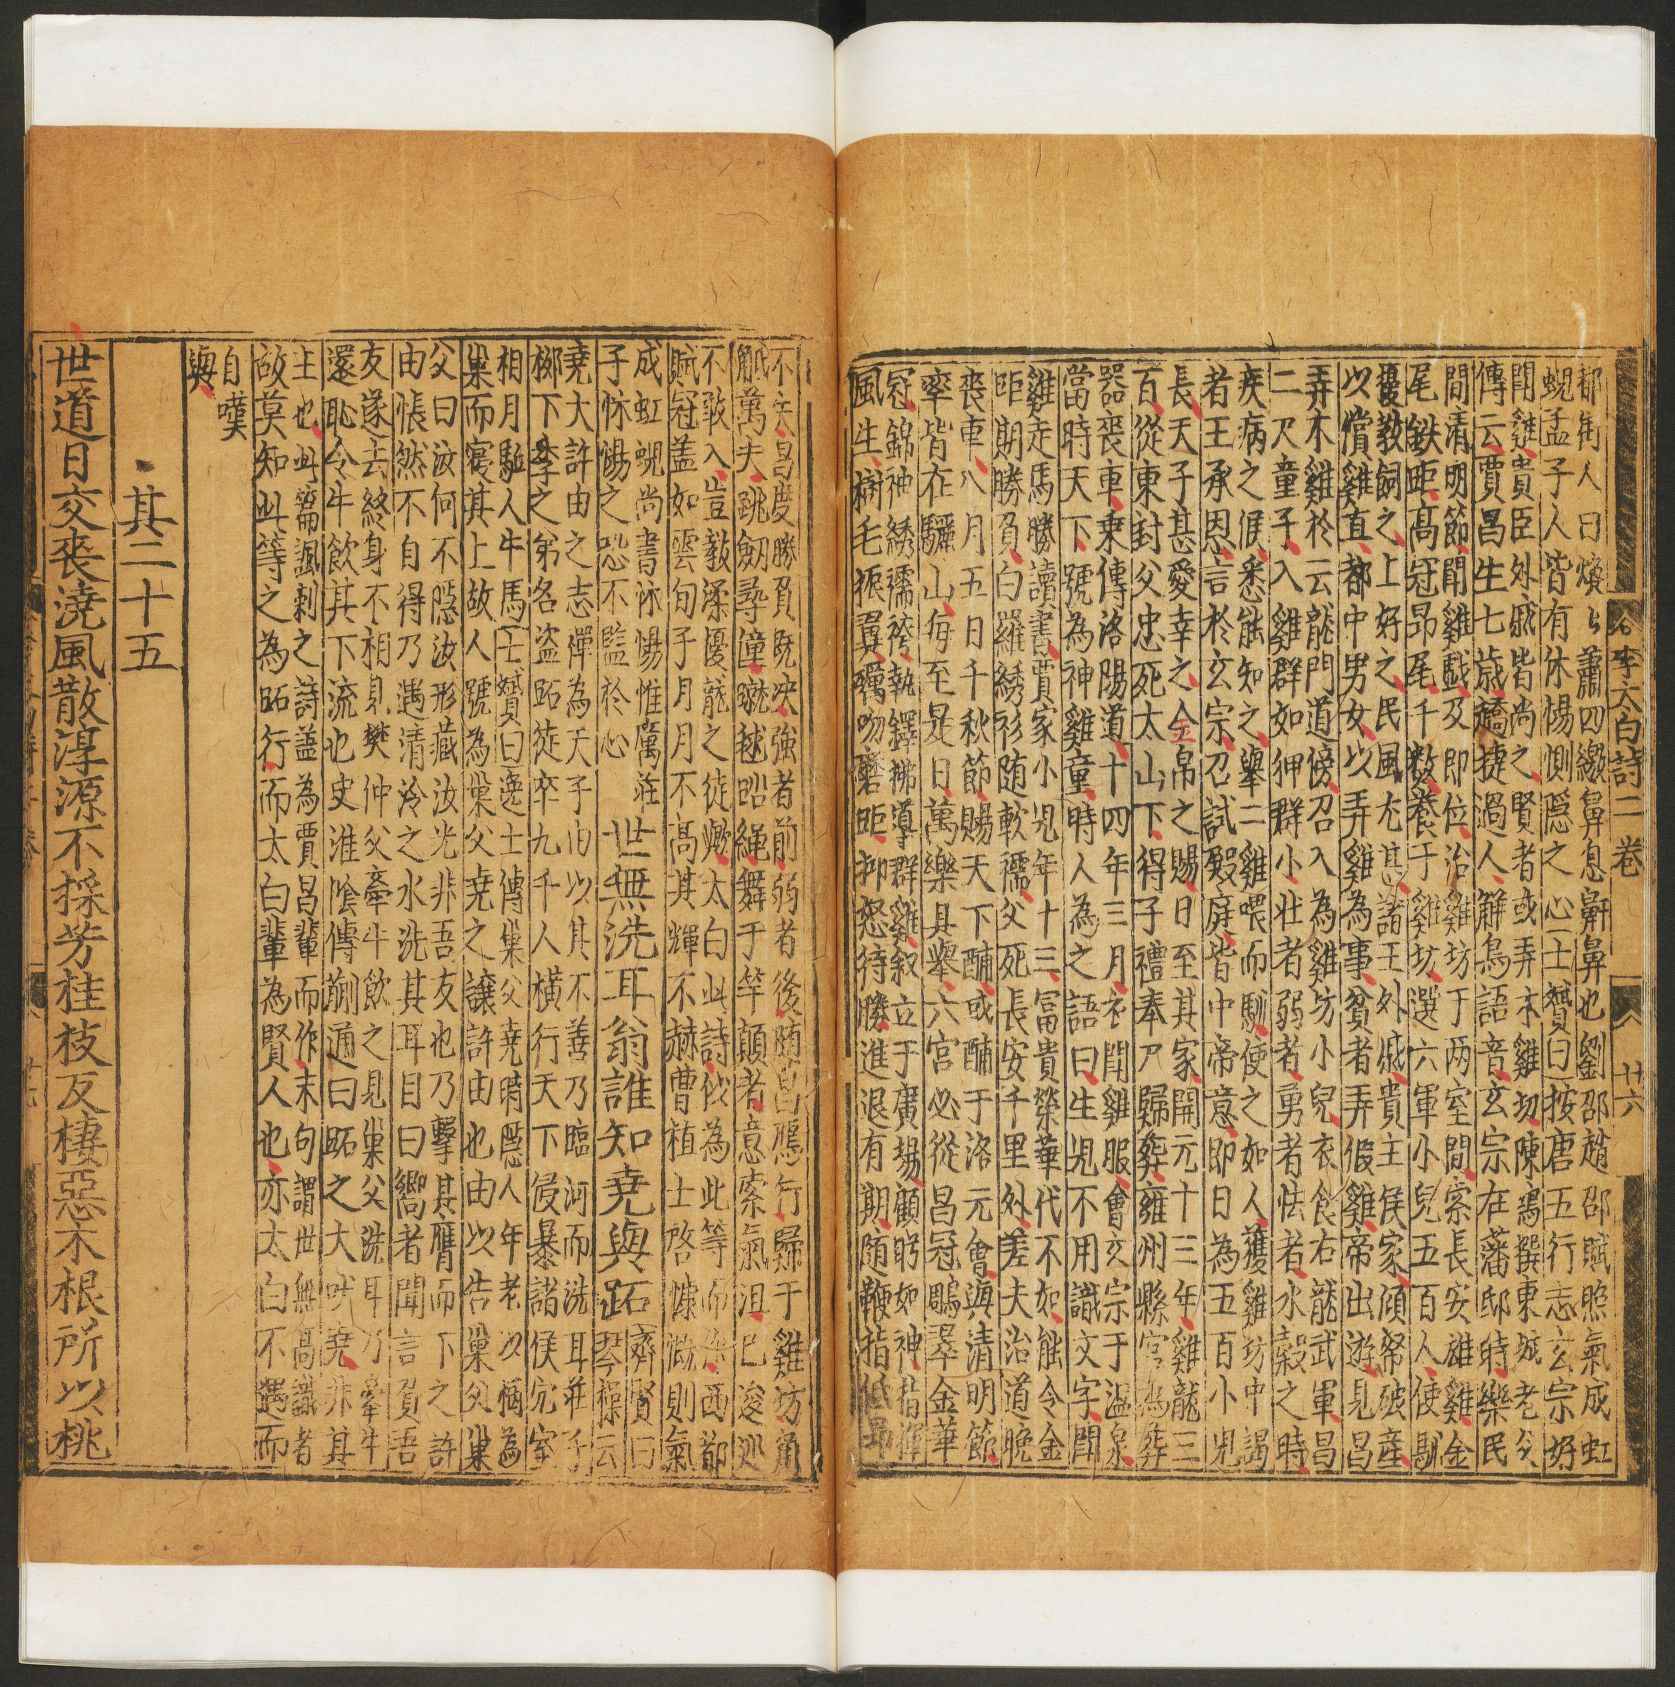 李太白詩二卷
廿六
都街人曰煥与蕭四繳鼻息鼾鼻也劉邵趙邵賦煦氣成虹
蜺孟子人皆有怵惕惻隱之心士贇曰按唐五行志玄宗好
鬪雞貴臣外戚皆尚之賢者或弄木雞切陳鴻撰東城老父
傳云賈昌生七歲趫捷過人解鳥語音玄宗在藩邸時樂民
間清明節鬪雞戲及即位治雞坊于两宮間索長安雄雞金
尾鉄距高冠昂尾千數養于雞坊選六軍小兒五百人使馴
擾教飼之上好之民風尤甚諸王外戚貴主侯家傾帑破產
以償雞直都中男女以弄雞為事貧者弄假雞帝出遊見昌
弄木雞於云龍門道傍召入為雞坊小兒衣食右龍武軍昌
二尺童子入雞群如狎群小壮者弱者勇者怯者水穀之時
疾病之候悉能知之舉二雞喂而馴使之如人護雞坊中謁
者王承恩言於玄宗召試殿庭皆中帝意即日為五百小兒
長天子甚愛幸之金帛之賜日至其家開元十三年雞龍三
百從東封父忠死太山下得子禮奉尸歸葬雍州縣官為葬
器喪車乘傳洛陽道十四年三月衣鬪雞服會玄宗于溫泉
當時天下號為神雞童時人為之語曰生兒不用識文字鬪
雞走馬勝讀書賈家小兒年十三富貴榮華代不如能令金
距期勝負白羅綉衫随軟襦父死長安千里外差夫治道晚
喪車八月五日千秋節賜天下酺或酺于洛元會與清明節
率皆在驪山每至是日萬樂具舉六宮必從昌冠鵰翠金華
冠錦神綉襦袴執鐸拂導群雞叙立于廣場顧眄如神指揮
風生樹毛振翼礪吻磨距抑怒待勝進退有期随鞭指低昂
不失昌度勝負既决強者前弱者後随昌鴈行歸于雞坊角
觝萬夫跳劒尋僮蹴毬蹈繩舞于竿顛者意索氣沮已逡巡
不敢入豈教猱優龍之徒歟太白此詩似為此等而作西都
賦冠盖如雲旬子月月不高其輝不赫曹植士啓慷慨則氣
成虹蜺尚書怵惕惟厲莊
子怵惕之恐不監於心
世無洗耳翁誰知堯與跖
齊賢曰
琴操云
堯大許由之志禪為天子由以其不善乃臨河而洗耳莊子
柳下季之弟名盗跖徒卒九千人横行天下侵暴諸侯穴室
相月駈人牛馬士贇曰逸士傳巢父堯時隱人年老以樹為
巢而寝其上故人號為巢父堯之讓許由也由以告巢父巢
父曰汝何不隱汝形藏汝光非吾友也乃擊其膺而下之許
由悵然不自得乃遇清泠之水洗其耳目曰嚮者聞言負吾
友遂去終身不相見樊仲父牽牛飲之見巢父洗耳乃牽牛
還恥令牛飲其下流也史淮陰傳蒯通曰跖之犬吠堯非其
主也此篇諷刺之詩盖為賈昌輩而作末句謂世無高識者
故莫知此等之為跖行而太白輩為賢人也亦太白不遇而
自嘆
與
其二十五
世道日交喪澆風散淳源不採芳桂枝反棲惡木根所以桃